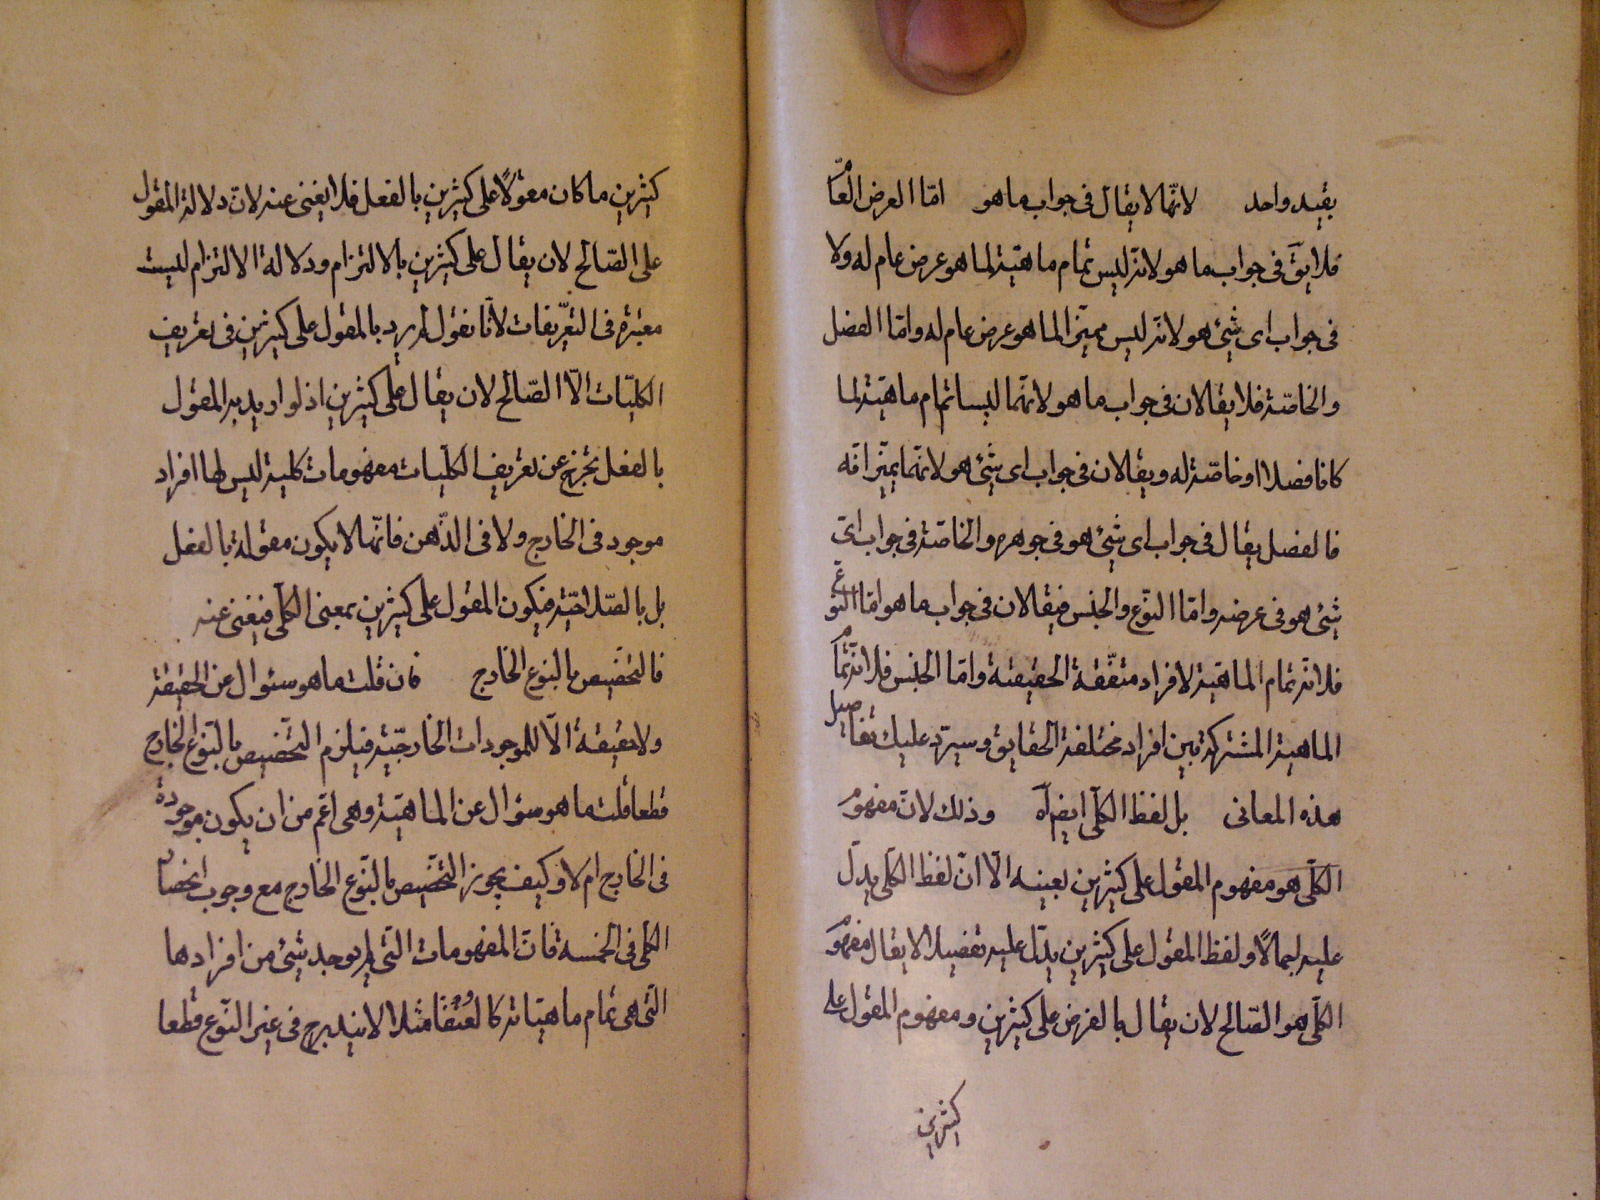 بقيد واحد لانها لا يقال فى جواب ما هو اما العرض العام
فلا يق فى جواب ما هو لانه ليس تمام ماهية لما هو عرض عام له ولا
فى جواب اى شئ هو لانه ليس مميزا لما هو عرض عام له واما الفصل
والخاصة فلا يقالان فى جواب ما هو لانهما ليسا تمام ماهية لما
كانا فصلا او خاصة له ويقالان فى جواب اى شئ هو لانهما يميزانه
فالفصل يقال فى جواب اى شئ هو فى جوهره والخاصة فى جواب اى
شئ هو فى عرضه واما النوع والجنس فيقالان فى جواب ما هو اما النوع
فلانه تمام الماهية لافراد متفقة الحقيقة واما الجنس فلانه تمام
الماهية المشتركة بين افراد مختلفة الحقايق وسيرد عليك تفاصيل
هذه المعانى بل لفظ الكلى ايض آه وذلك لان مفهوم
الكلى هو مفهوم المقول على كثيرين بعينه الا ان لفظ الكلى يدل
عليه اجمالا ولفظ المقول على كثيرين يدل عليه تفصيلا لا يقال مفهوم
الكلى هو الصالح لان يقال بالفرض على كثيرين ومفهوم المقول على
كثيرين
كثيرين ما كان مقولا على كثيرين بالفعل فلا يغنى عنه لان دلالة المقول
على الصالح لان يقال على كثيرين بالالتزام ودلالة الالتزام ليست
معتبرة فى التعريفات لانا نقول لم يرد بالمقول على كثيرين فى تعريف
الكليات الا الصالح لان يقال على كثيرين اذ لو اريد به المقول
بالفعل يخرج عن تعريف الكليات مفهومات كلية ليس لها افراد
موجود فى الخارج ولا فى الذهن فانها لا يكون مقولة بالفعل
بل بالصلاحية فيكون المقول على كثيرين بمعنى الكلى فيغنى عنه
فالتخصيص بالنوع الخارج فان قلت ما هو سئوال عن الحقيقة
ولا حقيقة الا للموجودات الخارجية فيلزم التخصيص بالنوع الخارج
قطعا قلت ما هو سئوال عن الماهية وهى اعم من ان يكون موجودة
فى الخارج ام لا وكيف يجوز التخصيص بالنوع الخارج مع وجوب انحصار
الكلى فى الخمسة فان المفهومات التى لم يوجد شئ من افرادها
التى هى تمام ماهياته كالعنقا مثلا لا يندرج فى غير النوع قطعا